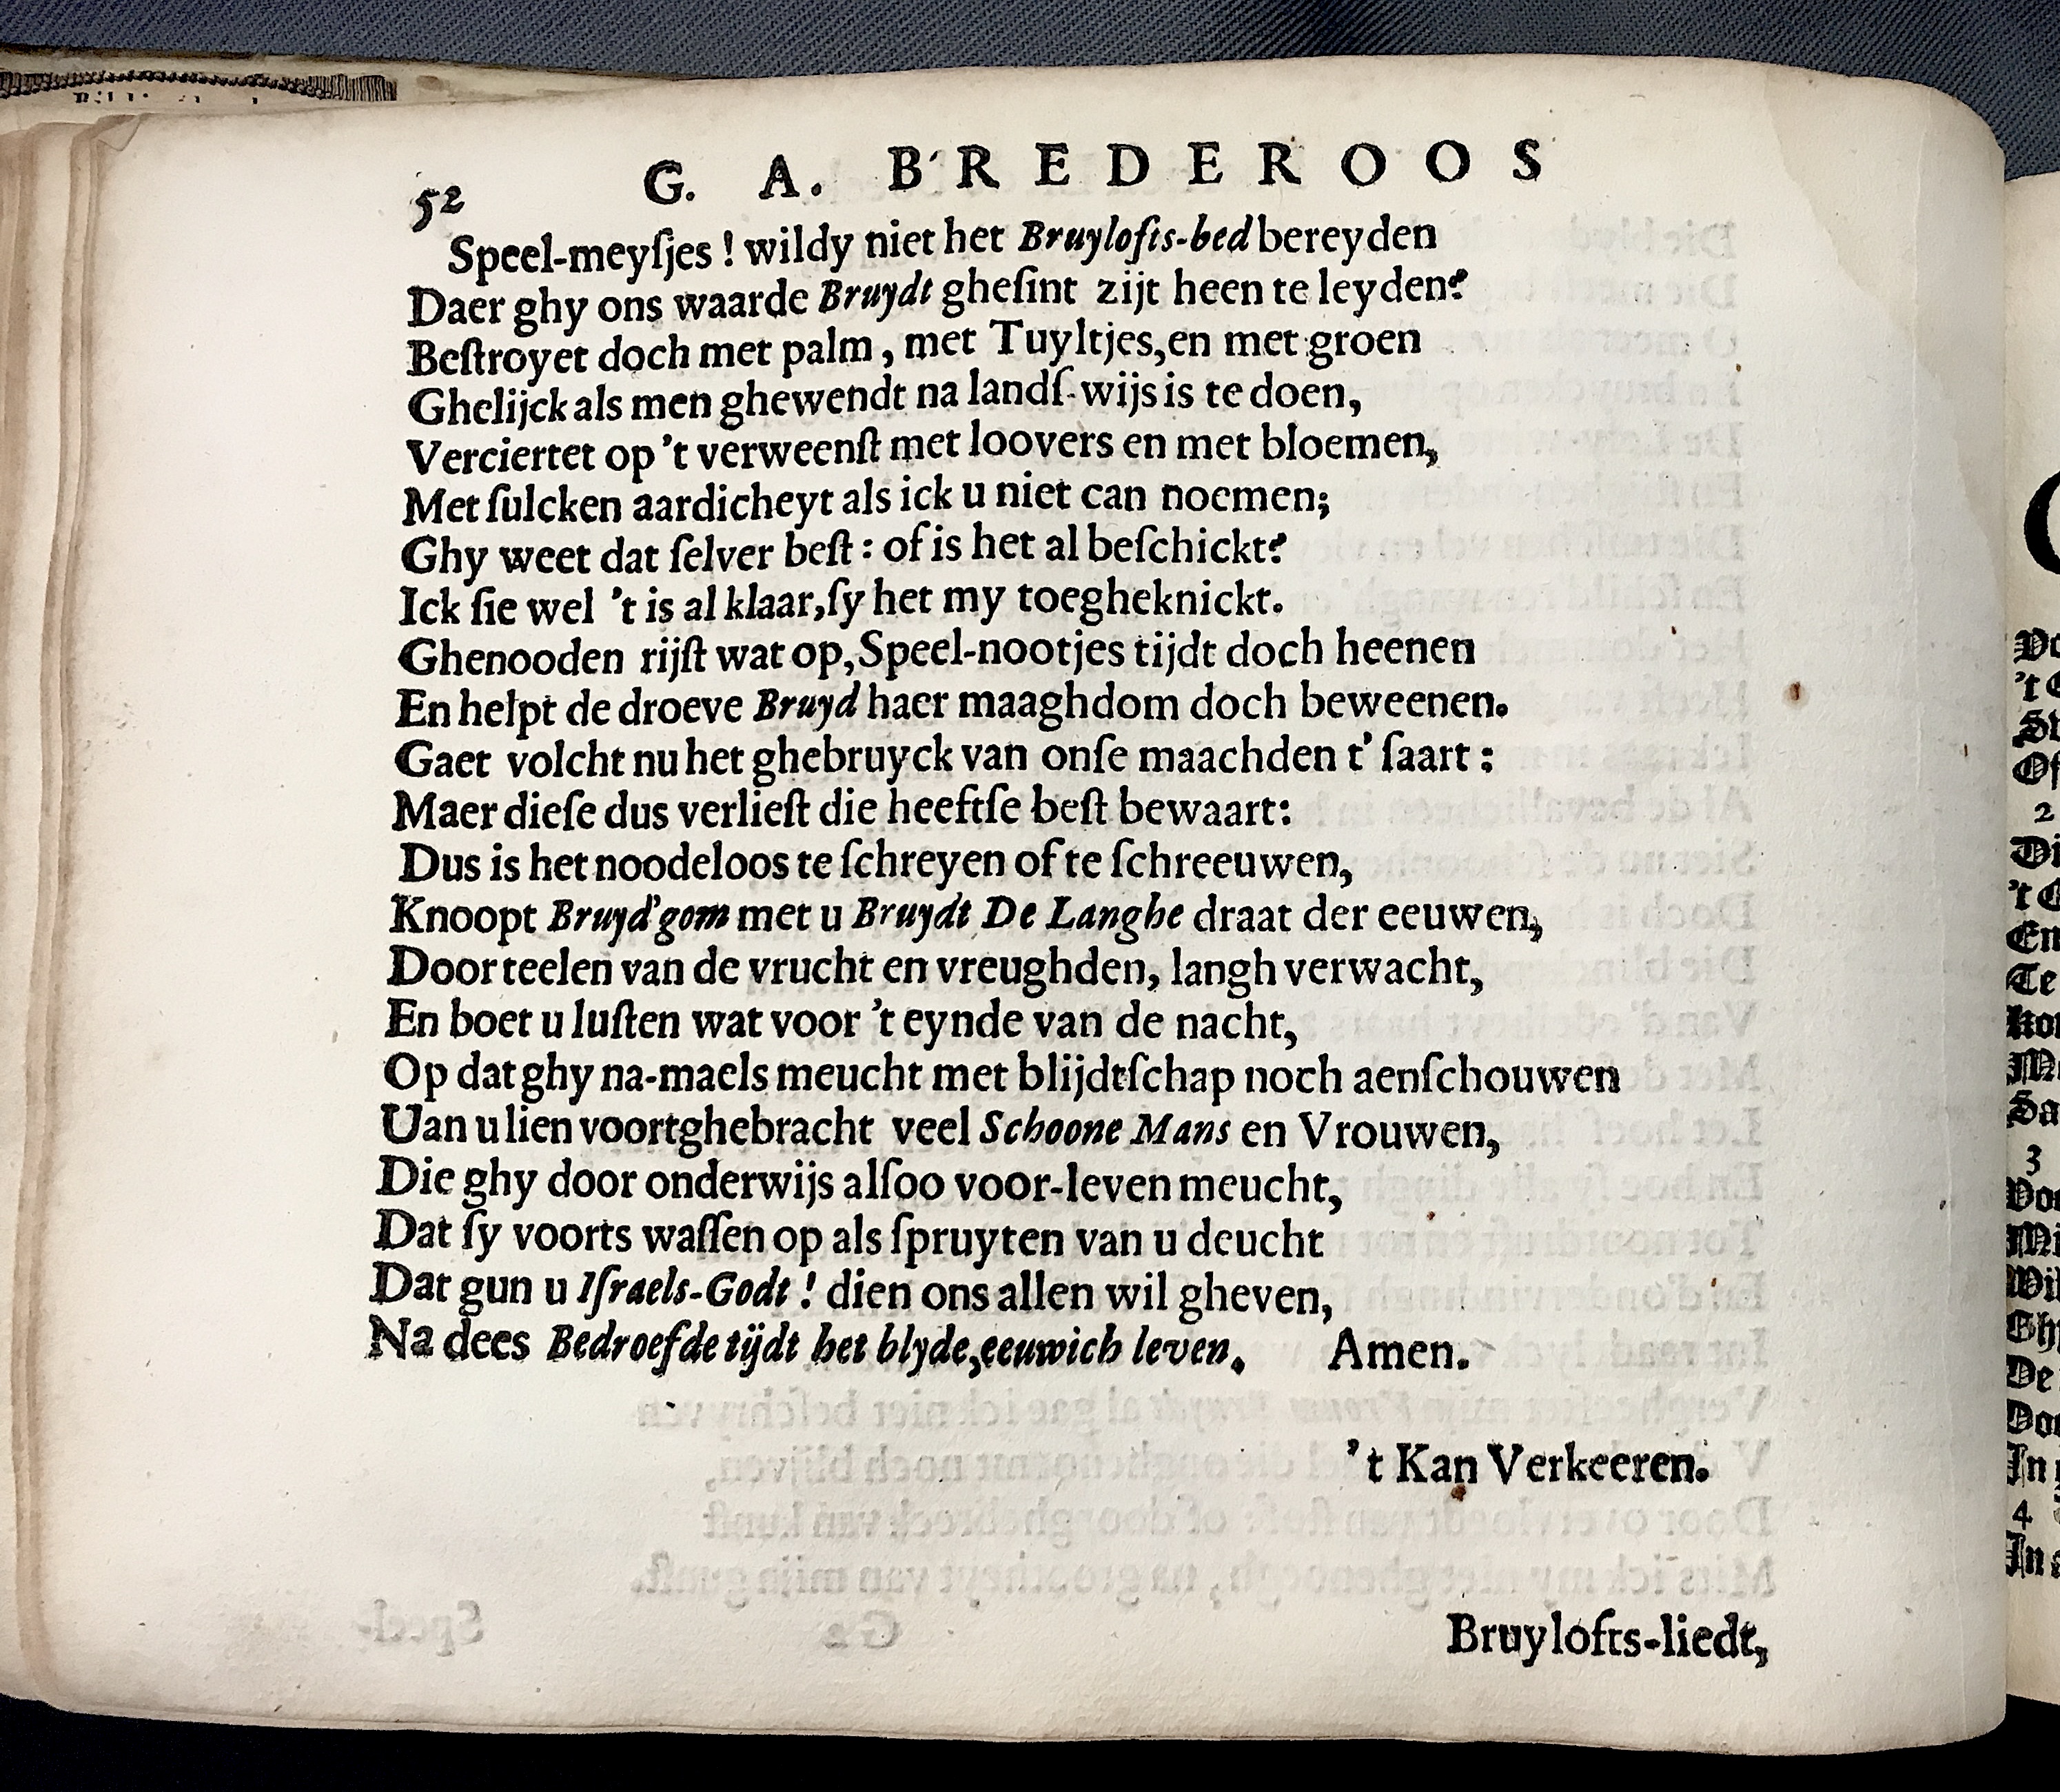 52 G. A. BREDEROOS
Speel-meyſjes ! wildy niet het Bruylofts-bed bereyden
Daer ghy ons waarde Bruydt gheſint zijt heen te leyden?
Beſtroyet doch met palm, met Tuyltjes, en met groen
Ghelijck als men ghewendt na landſ-wijs is te doen,
Verciertet op 't verweenſt met loovers en met bloemen,
Met ſulcken aardicheyt als ick u niet can noemen;
Ghy weet dat ſelver beſt : of is het al beſchickt?
Ick ſie wel 't is al klaar, ſy het my toegheknickt.
Ghenooden rijſt wat op, Speel-nootjes tijdt doch heenen
En helpt de droeve Bruyd haer maaghdom doch beweenen.
Gaet volcht nu het ghebruyck van onſe maachden t' ſaart :
Maer dieſe dus verlieſt die heeftſe beſt bewaart:
Dus is het noodeloos te ſchreyen of te ſchreeuwen,
Knoopt Bruyd'gom met u Bruydt De Langhe draat der eeuwen,
Door teelen van de vrucht en vreughden, langh verwacht,
En boet u luſten wat voor 't eynde van de nacht,
Op dat ghy na-maels meucht met blijdtſchap noch aenſchouwen
Uan u lien voortghebracht veel Schoone Mans en Vrouwen,
Die ghy door onderwijs alſoo voor-leven meucht,
Dat ſy voorts waſſen op als ſpruyten van u deucht
Dat gun u Iſraels-Godt ! dien ons allen wil gheven,
Na dees Bedroefde tijdt het blyde, eeuwich leven. Amen.
't Kan Verkeeren.
Bruylofts-liedt,